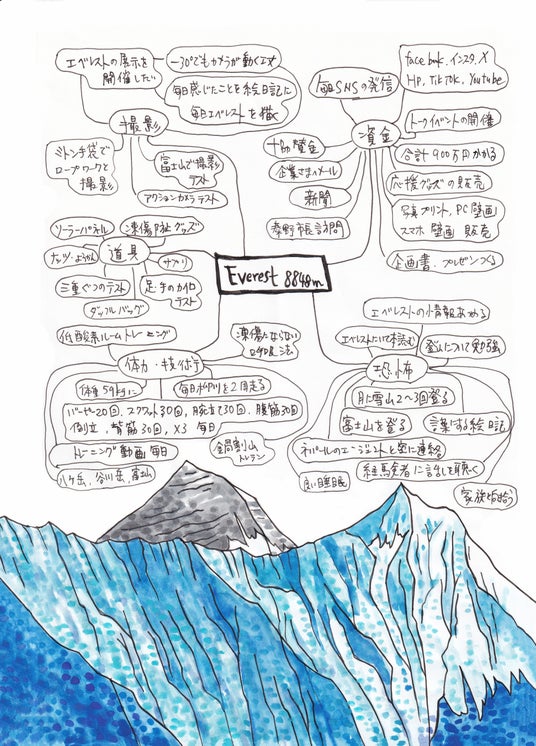 エベレストの展示を
開催したい
-30°でもカメラが動く工夫
毎日感じたことを絵日記に
毎日エベレストを描く
撮影
ミトン手袋で
ロープワークと
撮影
富士山で撮影
テスト
アクションカメラテスト
毎日SNSの発信
facebook, インスタ, X
HP, TikTok, Youtube
資金
トークイベントの開催
合計900万円かかる
応援グッズの販売
写真プリント, PC壁画
スマホ壁画 販売
企画書、プレゼンつくる
協賛金
企業さまへメール
新聞
秦野市長訪問
ソーラーパネル
凍傷防止グッズ
道具
ナッツ・ようかん
サプリ
三重ぐつのテスト
足・手のカイロ
テスト
ダッフルバッグ
Everest 8848m
低酸素ルームトレーニング
凍傷にならない
体力・技術
体重59kgに
バーピー20回, スクワット30回, 腕立て30回, 腹筋30回
倒立, 背筋30回, ×3 毎日
トレーニング動画 毎日
八ケ岳, 谷川岳, 富士山
トレラン
エベレストの情報あつめる
エベレストについて本読む
登山について勉強
恐怖
月に雪山2〜3回登る
富士山を登る
言葉にする絵日記
ネパールのエージェントと密に連絡
経験者に話しを聴く
良い睡眠
家族